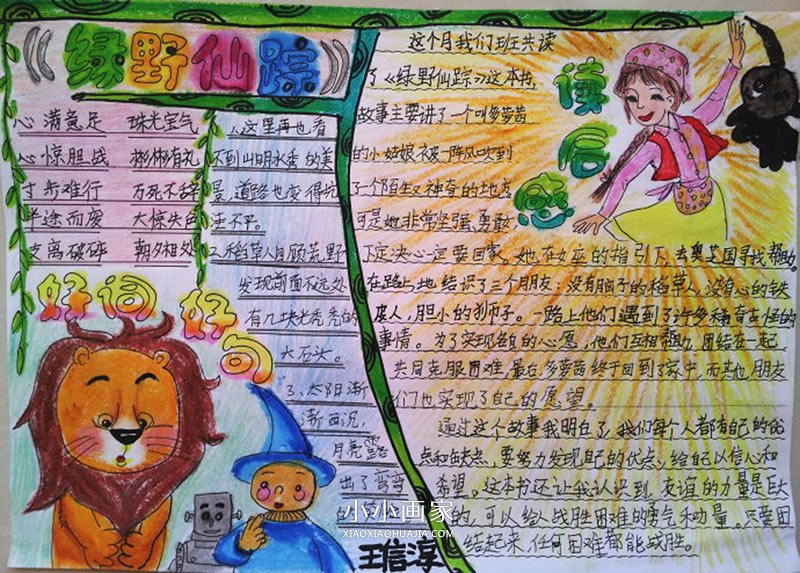 《绿野仙踪》
心满意足 珠光宝气
心惊胆战 彬彬有礼
寸步难行 万死不辞
半途而废 大惊失色
支离破碎 朝夕相处
好词好句
1、这里再也看
不到山明水秀的美
景,道路也变得坑
洼不平。
2、稻草人自顾荒野
发现前面不远处
有几块光秃秃的
大石头。
3、太阳渐
渐西沉,
月亮露
出了弯弯
读后感
这个月我们班共读
了《绿野仙踪》这本书,
故事主要讲了一个叫多萝茜
的小姑娘被一阵风吹到
了一个陌生又神奇的地方,
可是她非常坚强、勇敢,
下定决心一定要回家。她在女巫的指引下,去奥芝国寻找帮助。
在路上,她结识了三个朋友:没有脑子的稻草人,没有心的铁
皮人,胆小的狮子。一路上他们遇到了许多稀奇古怪的
事情。为了实现各自的心愿,他们互相帮助,团结在一起,
共同克服困难,最后多萝茜终于回到了家中,而其他朋友
们也实现了自己的愿望。
通过这个故事我明白了,我们每个人都有自己的优
点和缺点,要努力发现自己的优点,给自己以信心和
希望。这本书还让我认识到,友谊的力量是巨大
的,可以给人战胜困难的勇气和力量。只要团
结起来,任何困难都能战胜。
王信淳
小小画家
XIAOXIAOHUAJIA.COM